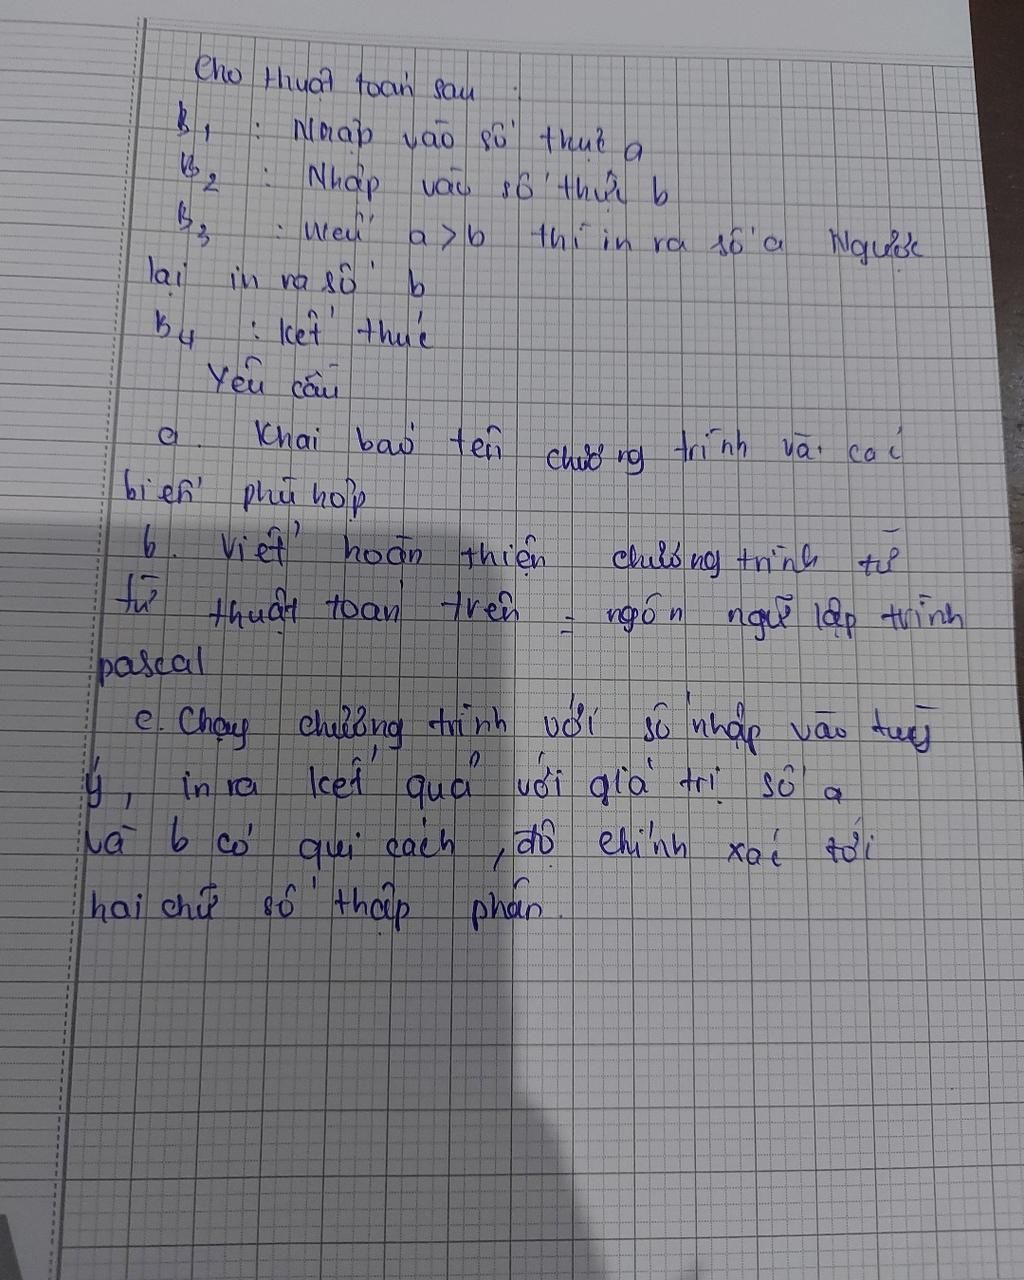 Cho thuật toán sau :
B1 : Nhập vào số thực a
B2 : Nhập vào số thực b
B3 : Nếu a>b thì in ra số a Ngược
lại in ra số b
B4 : kết thúc
Yêu cầu
a. Khai báo tên chương trình và các
biến phù hợp
b. Viết hoàn thiện chương trình từ
từ thuật toán trên = ngôn ngữ lập trình
pascal
c. Chạy chương trình với số nhập vào tuỳ
ý, in ra kết quả với giá trị số a
và b có qui cách, độ chính xác tới
hai chữ số thập phân.